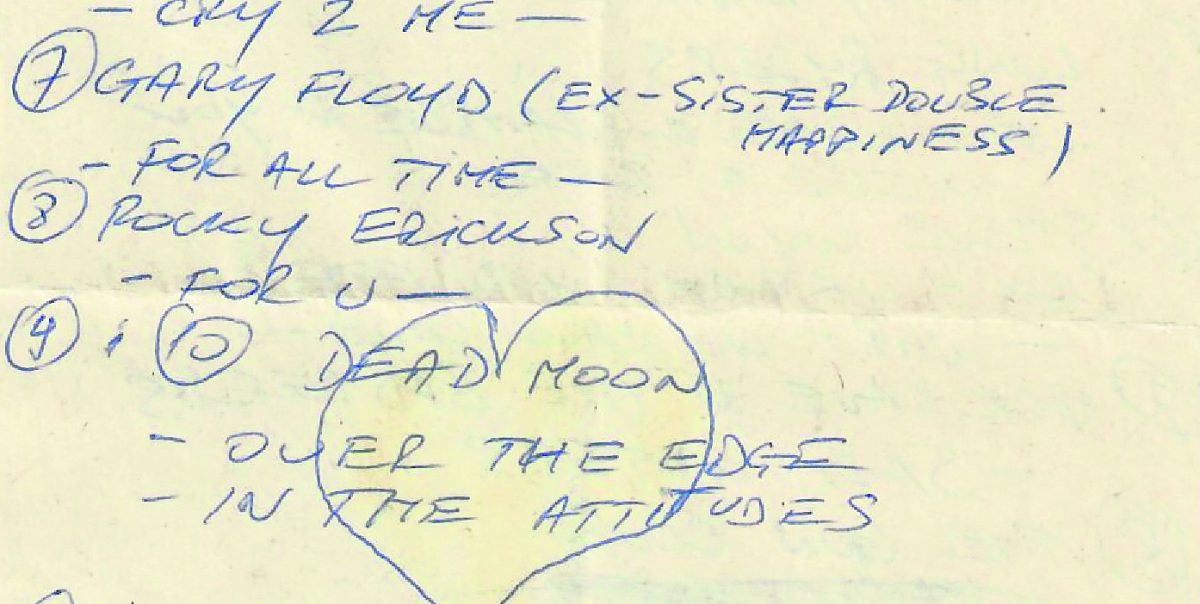 - CRY 2 ME -
⑦ GARY FLOYD (EX-SISTER DOUBLE
HAPPINESS)
- FOR ALL TIME -
⑧ ROCKY ERICKSON
- FOR U -
⑨ + ⑩ DEAD MOON
- OVER THE EDGE
- IN THE ATTITUDES